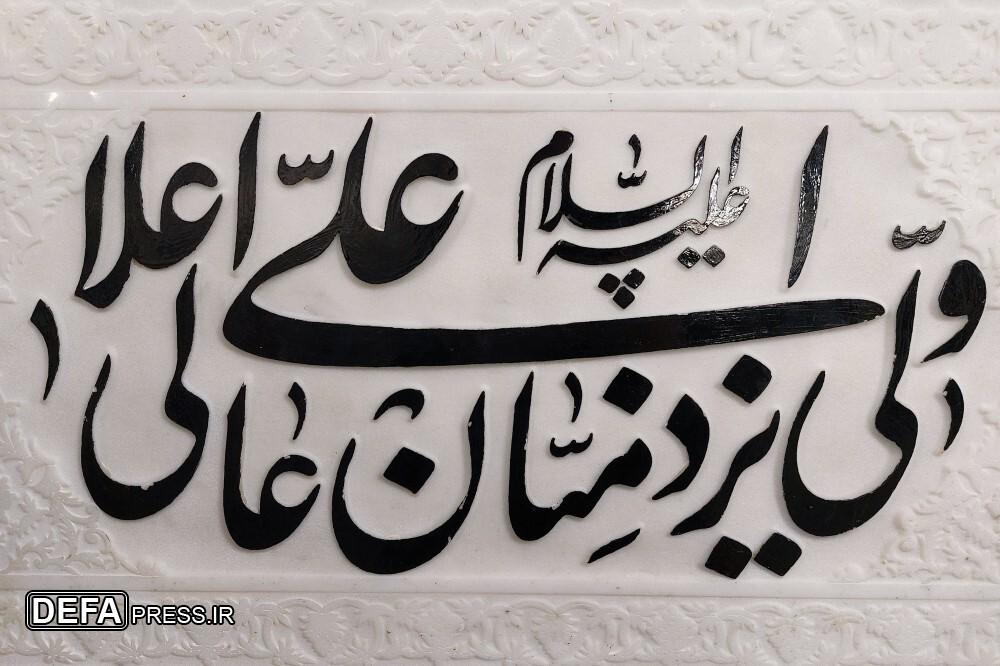 ولیّ ایزد منّان علیّ عالی اعلا
علیه السّلام
DEFAPRESS.IR